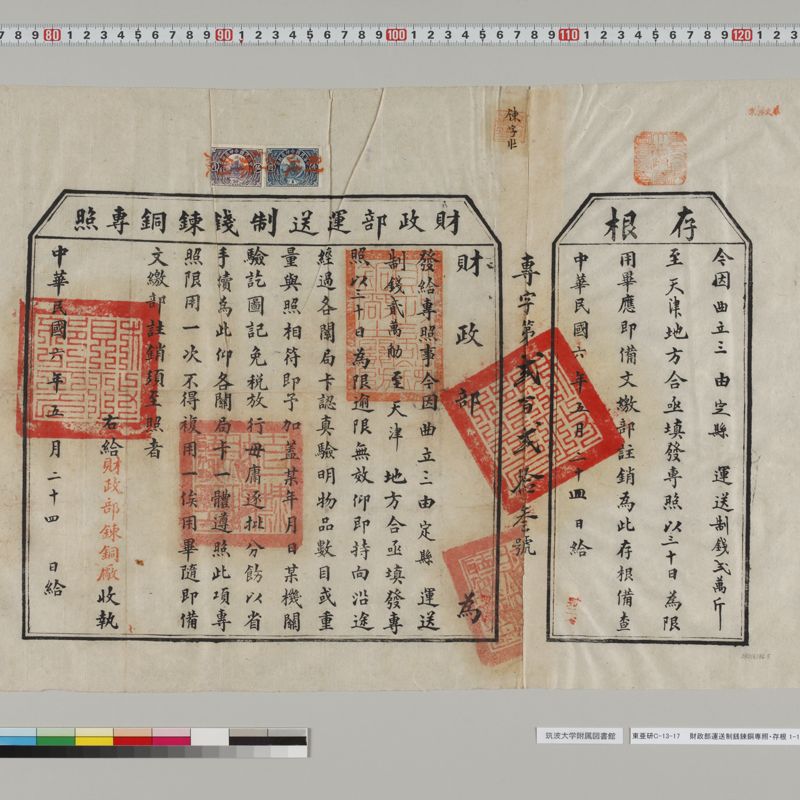 存根
今因曲立三由定縣 運送制錢貳萬斤
至天津地方合亟填發專照以三十日為限
用畢應即備文繳部註銷為此存根備查
中華民國六年五月二十四日給
專字第貳百貳拾叁號
財政部運送制錢鍊銅專照
財政部 為
發給專照事今因曲立三由定縣 運送
制錢貳萬觔至天津 地方合亟填發專
照以三十日為限逾限無效仰即持向沿途
經過各關局卡認真驗明物品數目或重
量與照相符即予加蓋某年月日某機關
驗訖圖記免稅放行毋庸逐批分飭以省
手續為此仰各關局卡一體遵照此項專
照限用一次不得複用一俟用畢隨即備
文繳部註銷須至照者
右給財政部鍊銅廠收執
中華民國六年五月二十四 日給
筑波大学附属図書館
東亜研C-13-17 財政部運送制銭錬銅専照・存根 1-1
7 8 9 80 1 2 3 4 5 6 7 8 9 90 1 2 3 4 5 6 7 8 9 100 1 2 3 4 5 6 7 8 9 110 1 2 3 4 5 6 7 8 9 120 1 2 3